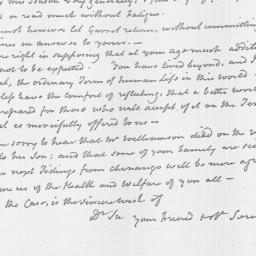 or read much without fatigue.
not however let Garret return, without committing
lines in answer to yours. —
are right in supposing that at your age much addition
not to be expected. You have lived beyond, and I
the ordinary Term of human Life in this world
have the comfort of reflecting, that a better world
prepared for those who will accept of it on the Terms
is mercifully offered to us —
sorry to hear that Mr Williamson died on the
to his Son; and that some of your Family are sick
next Tidings from Chenango will be more agree
us of the Health and Welfare of you all —
the Case, is the sincere wish of
Dr Sir your Friend & obt Serv